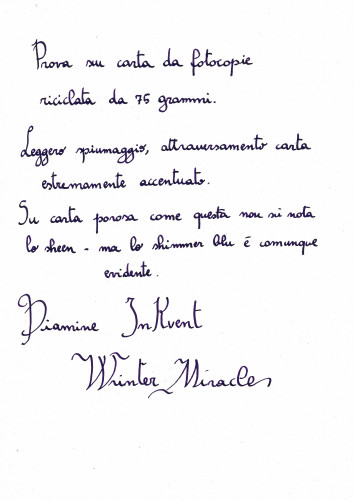 Prova su carta da fotocopie
riciclata da 75 grammi.
Leggero spiumaggio, attraversamento carta
estremamente accentuato.
Su carta porosa come questa non si nota
lo sheen - ma lo shimmer blu è comunque
evidente.
Diamine InKvent
Winter Miracles